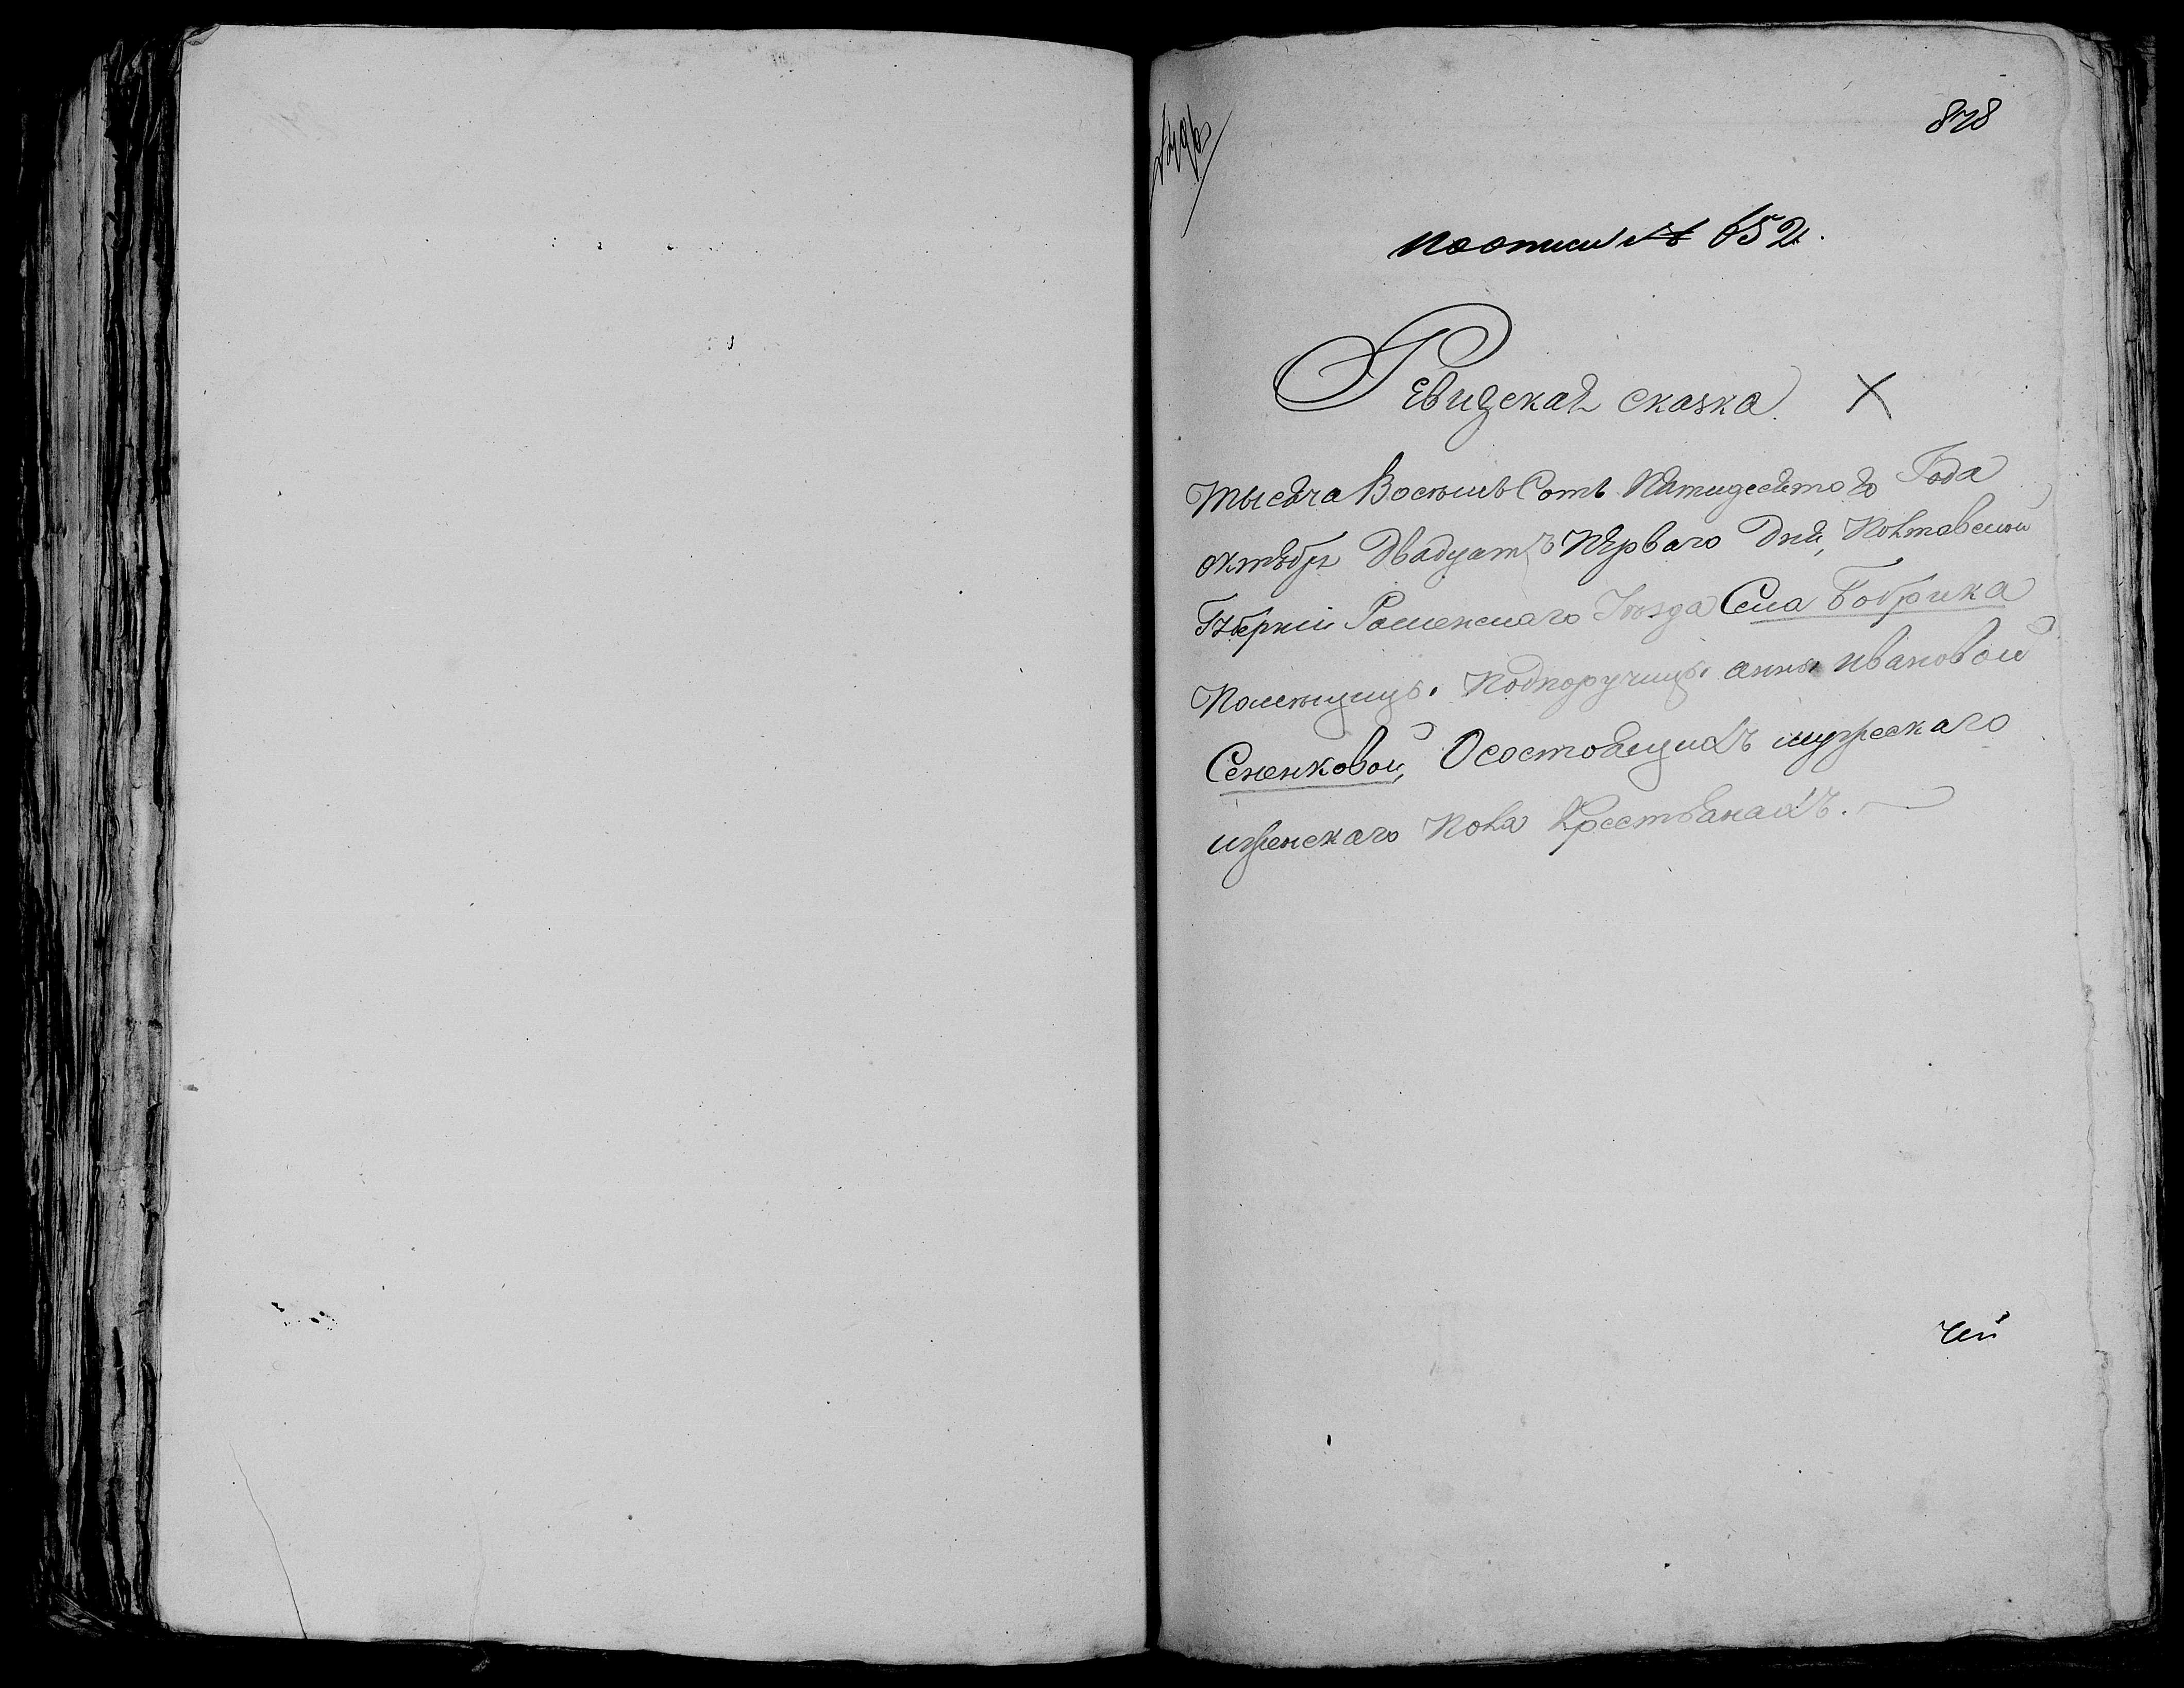 878
по описи № 652.
Ревизская сказка.
Тысяча Восемь Сотъ Пятидесятого Года
октября Двадцать Перваго Дня, Полтавской
Губернии Роменскаго Уезда Села Бобрика
Помещицы Подпоручицы анны ивановой
Сененковой, О состоящихъ мужескаго
и женскаго Пола Крестьянахъ.